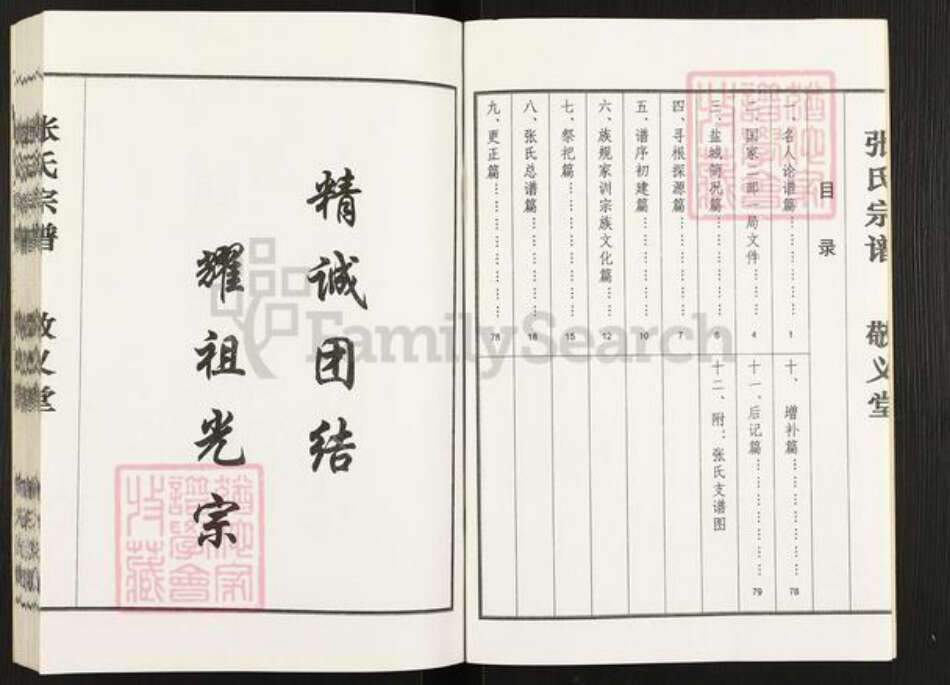 张氏宗谱 敬义堂
目录
一、名人论谱篇……………… 1
二、国家二部一局文件…… 4
三、盐城简况篇……………… 6
四、寻根探源篇……………… 7
五、谱序初建篇……………… 10
六、族规家训宗族文化篇…… 12
七、祭祀篇…………………… 15
八、张氏总谱篇……………… 18
九、更正篇…………………… 78
十、增补篇…………………… 78
十一、后记篇………………… 79
十二、附：张氏支谱图
精诚团结
耀祖光宗
张氏宗谱 敬义堂
FamilySearch